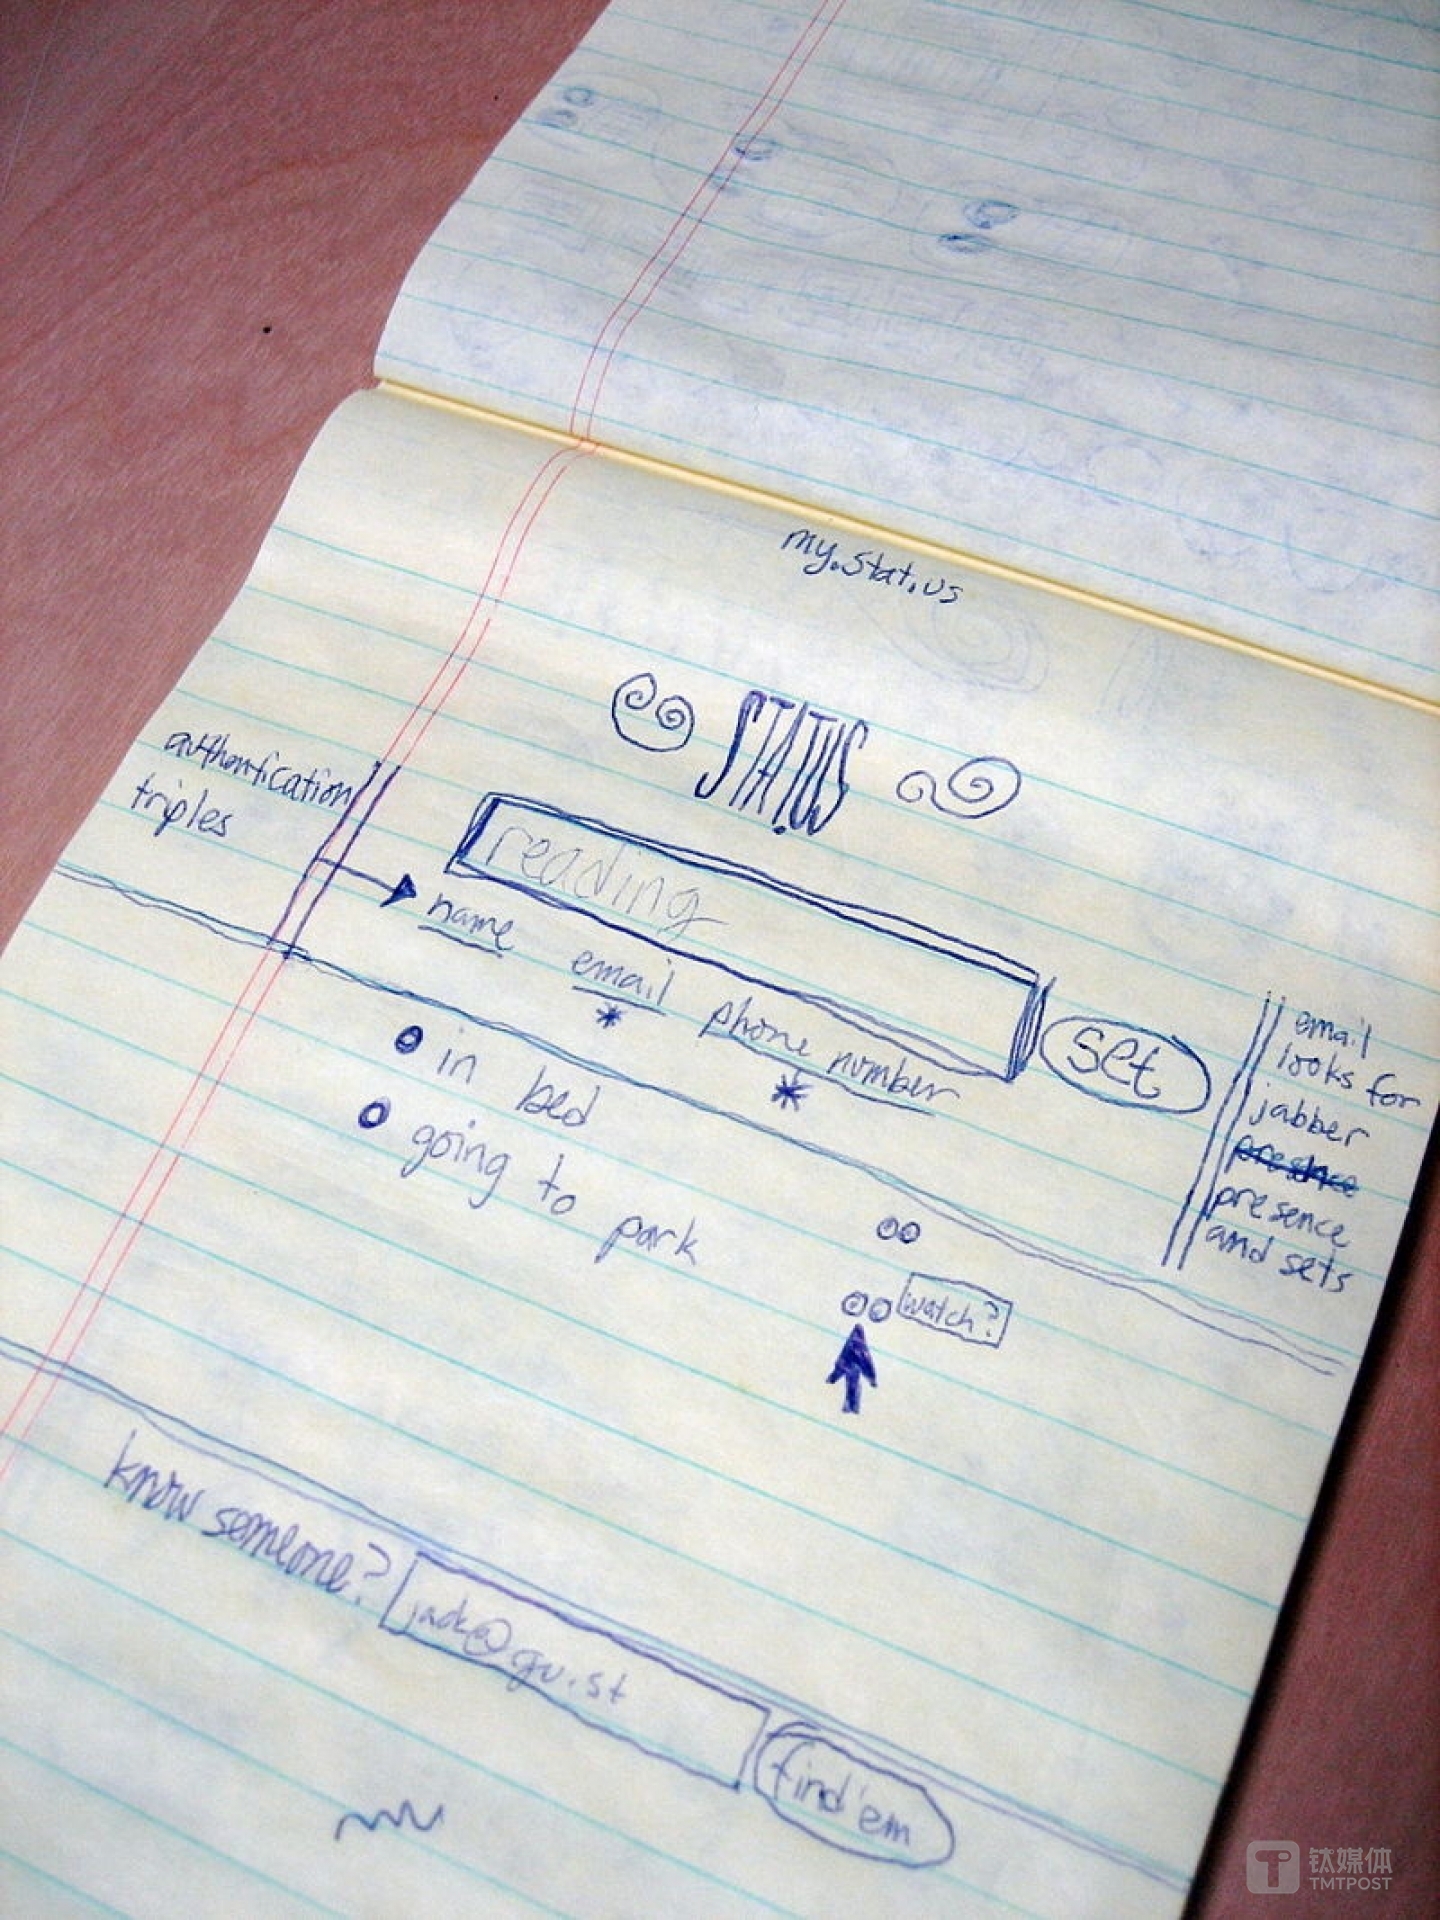 my.stat.us
STAT.US
authentication
triples
reading
name email phone number
* *
set
in bed
going to park
watch?
email
looks for
jabber
presence
presence
and sets
know someone?
jack@gu.st
find'em
钛媒体
TMTPOST